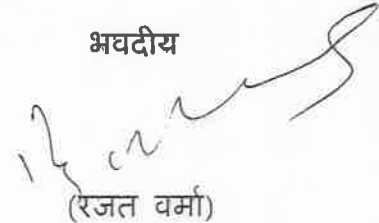 भवदीय
(रजत वर्मा)